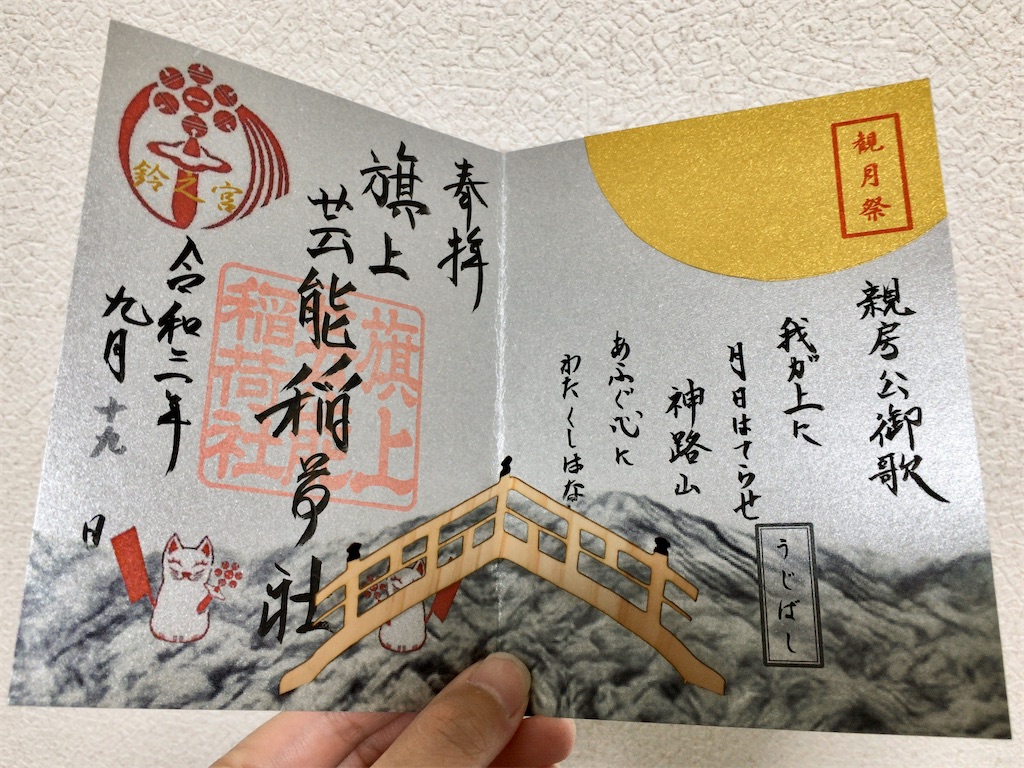 観月祭
親房公御歌
我が上に
月日はてらせ
神路山
あふぐ心に
わたくしはな
うじばし
奉拝
旗上
芸能稲荷社
旗上
稲荷社
鈴之宮
令和三年
九月十九日